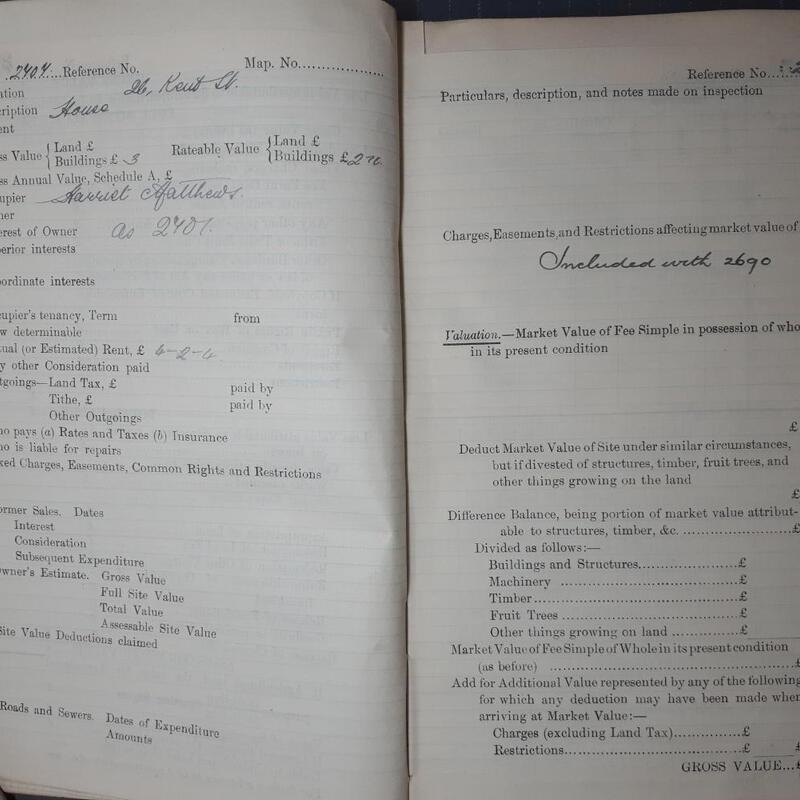 2404....Reference No.
Map. No..................
ation 26, Kent St.
cription House
ent
ss Value { Land £
Buildings £ 3
Rateable Value { Land £
Buildings £
ss Annual Value, Schedule A, £
upier Harriet Matthews.
ner
erest of Owner as 2401.
perior interests
oordinate interests
cupier's tenancy, Term from
w determinable
tual (or Estimated) Rent, £
y other Consideration paid
tgoings—Land Tax, £ paid by
Tithe, £ paid by
Other Outgoings
ho pays (a) Rates and Taxes (b) Insurance
ho is liable for repairs
xed Charges, Easements, Common Rights and Restrictions
ormer Sales. Dates
Interest
Consideration
Subsequent Expenditure
wner's Estimate. Gross Value
Full Site Value
Total Value
Assessable Site Value
Site Value Deductions claimed
Roads and Sewers. Dates of Expenditure
Amounts
Reference No...
Particulars, description, and notes made on inspection
Charges, Easements, and Restrictions affecting market value of
Included with 2690
Valuation.—Market Value of Fee Simple in possession of who
in its present condition
£
Deduct Market Value of Site under similar circumstances,
but if divested of structures, timber, fruit trees, and
other things growing on the land
£
Difference Balance, being portion of market value attribut-
able to structures, timber, &c. ........................£
Divided as follows:—
Buildings and Structures......................£
Machinery ......................................£
Timber...........................................£
Fruit Trees .....................................£
Other things growing on land ..............£
Market Value of Fee Simple of Whole in its present condition
(as before) ................................................£
Add for Additional Value represented by any of the following
for which any deduction may have been made when
arriving at Market Value:—
Charges (excluding Land Tax)...............£
Restrictions.....................................£ £
GROSS VALUE...£